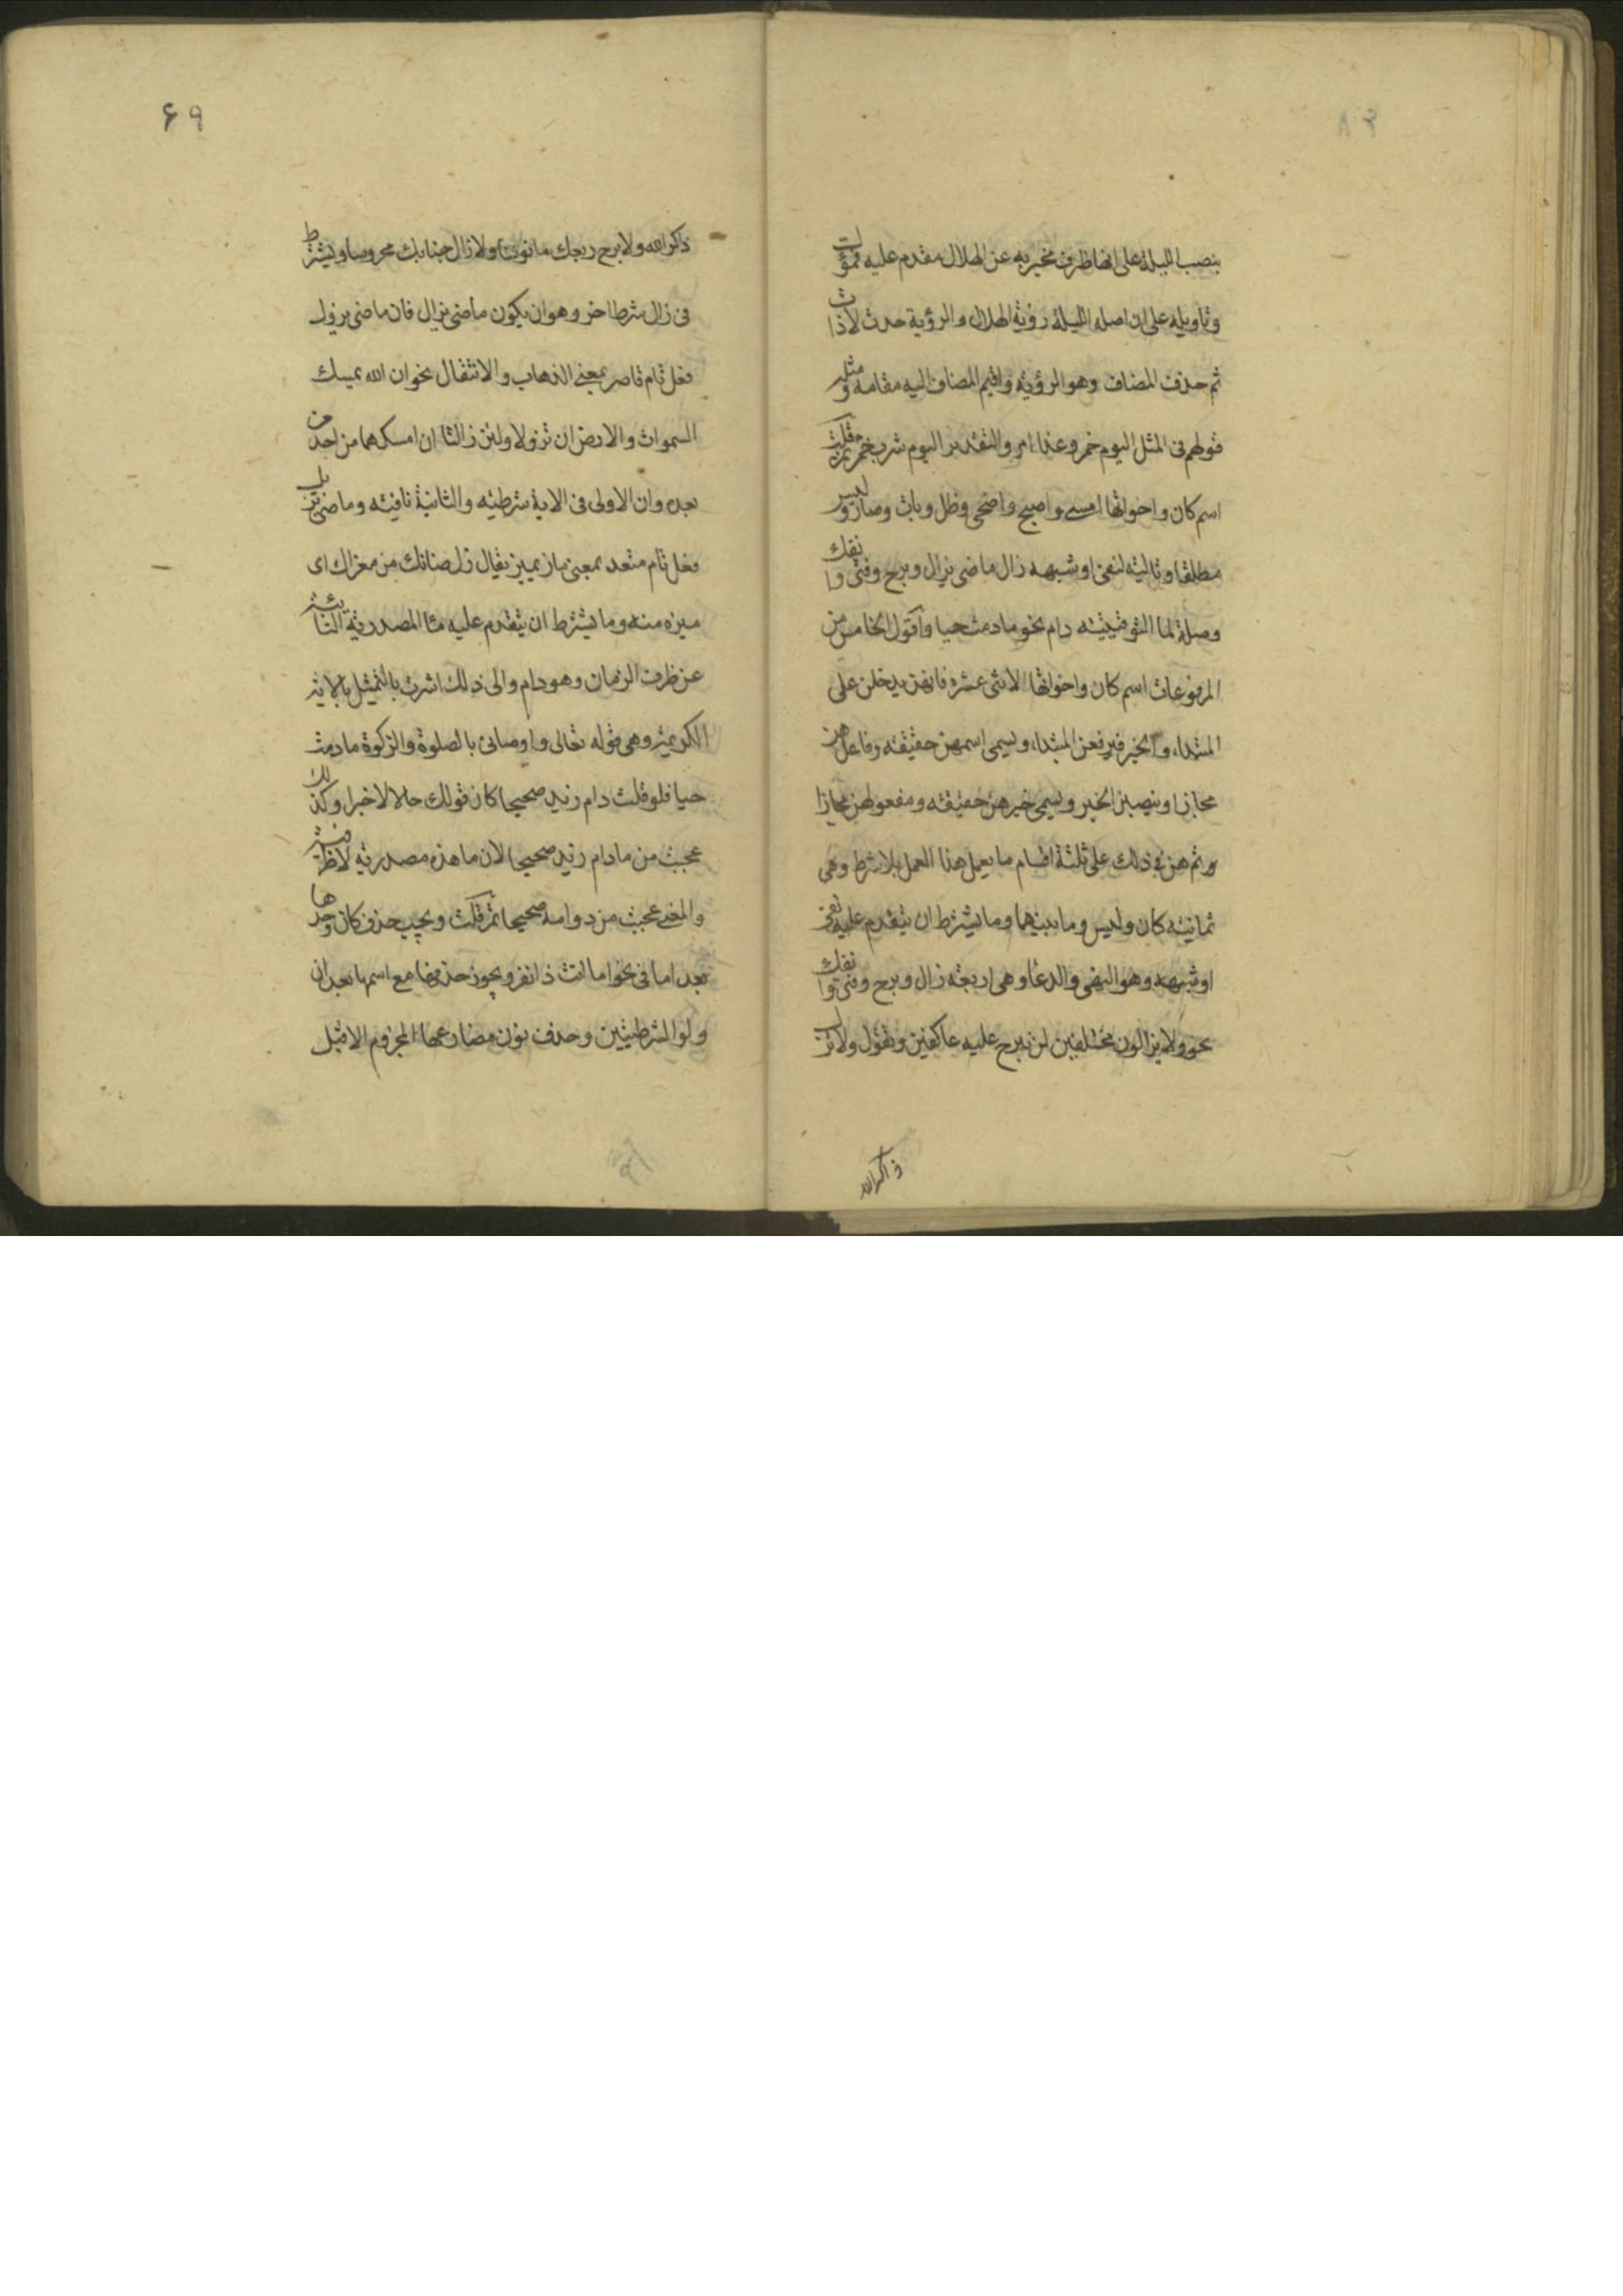 بنصب الليلة على انها ظرف مخبر به عن الهلال مقدم عليه فمؤول
وتاويله على ان اصله الليلة رؤية الهلال والرؤية حدث لا ذات
ثم حذف المضاف وهو الرؤية واقيم المضاف اليه مقامه ومثله
قولهم فى المثل اليوم خمر وغدا امر والتقدير اليوم شرب خمر ثم قلت
اسم كان واخواتها امسى واصبح واضحى وظل وبات وصار وليس
مطلقا وتالية لنفى او شبهه زال ماضى يزال وبرح وفتى وانفك
وصلة لما التوقيتيه دام نحو ما دمت حيا واقول الخامس من
المرفوعات اسم كان واخواتها الاثنى عشرة فانهن يدخلن على
المبتداء والخبر فيرفعن المبتداء ويسمى اسمهن حقيقه وفاعلهن
مجازا وينصبن الخبر ويسمى خبرهن حقيقه ومفعولهن مجازا
ثم هن فى ذلك على ثلثة اقسام ما يعمل هذا العمل بلا شرط وهى
ثمانيه كان وليس وما بينهما وما يشترط ان يتقدم عليه نفى
او شبهه وهو النهى والدعا وهى اربعه زال وبرح وفتى وانفك
نحو ولا يزالون مختلفين لن نبرح عليه عاكفين وتقول ولا تزل
ذاكر الله
۶۹
ذاكر الله ولا برح ربعك مانوسا ولا زال جنابك محروسا ويشترط
فى زال شرط اخر وهو ان يكون ماضى يزال فان ماضى يزول
فعل تام قاصر بمعنى الذهاب والانتقال نحو ان الله يمسك
السموات والارض ان تزولا ولئن زالتا ان امسكهما من احد من
بعده وان الاولى فى الاية شرطيه والثانية نافيه وماضى يزيل
فعل تام متعد بمعنى ماز يميز يقال زل ضانك من معزاك اى
ميزه منه وما يشترط ان يتقدم عليه ما المصدرية النائبة
عن ظرف الزمان وهو دام والى ذلك اشرت بالتمثيل بالاية
الكريمة وهى قوله تعالى واوصانى بالصلوة والزكوة ما دمت
حيا فلو قلت دام زيد صحيحا كان قولك حالا لا خبرا وكذلك
عجبت من ما دام زيد صحيحا لان ما هذه مصدرية لا ظرفية
والمعنى عجبت من دوامه صحيحا ثم قلت ويجب حذف كان وحدها
بعد اما فى نحو اما انت ذا نفر ويجوز حذفها مع اسمها بعد ان
ولو الشرطيتين وحذف نون مضارعها المجزوم الا قبل